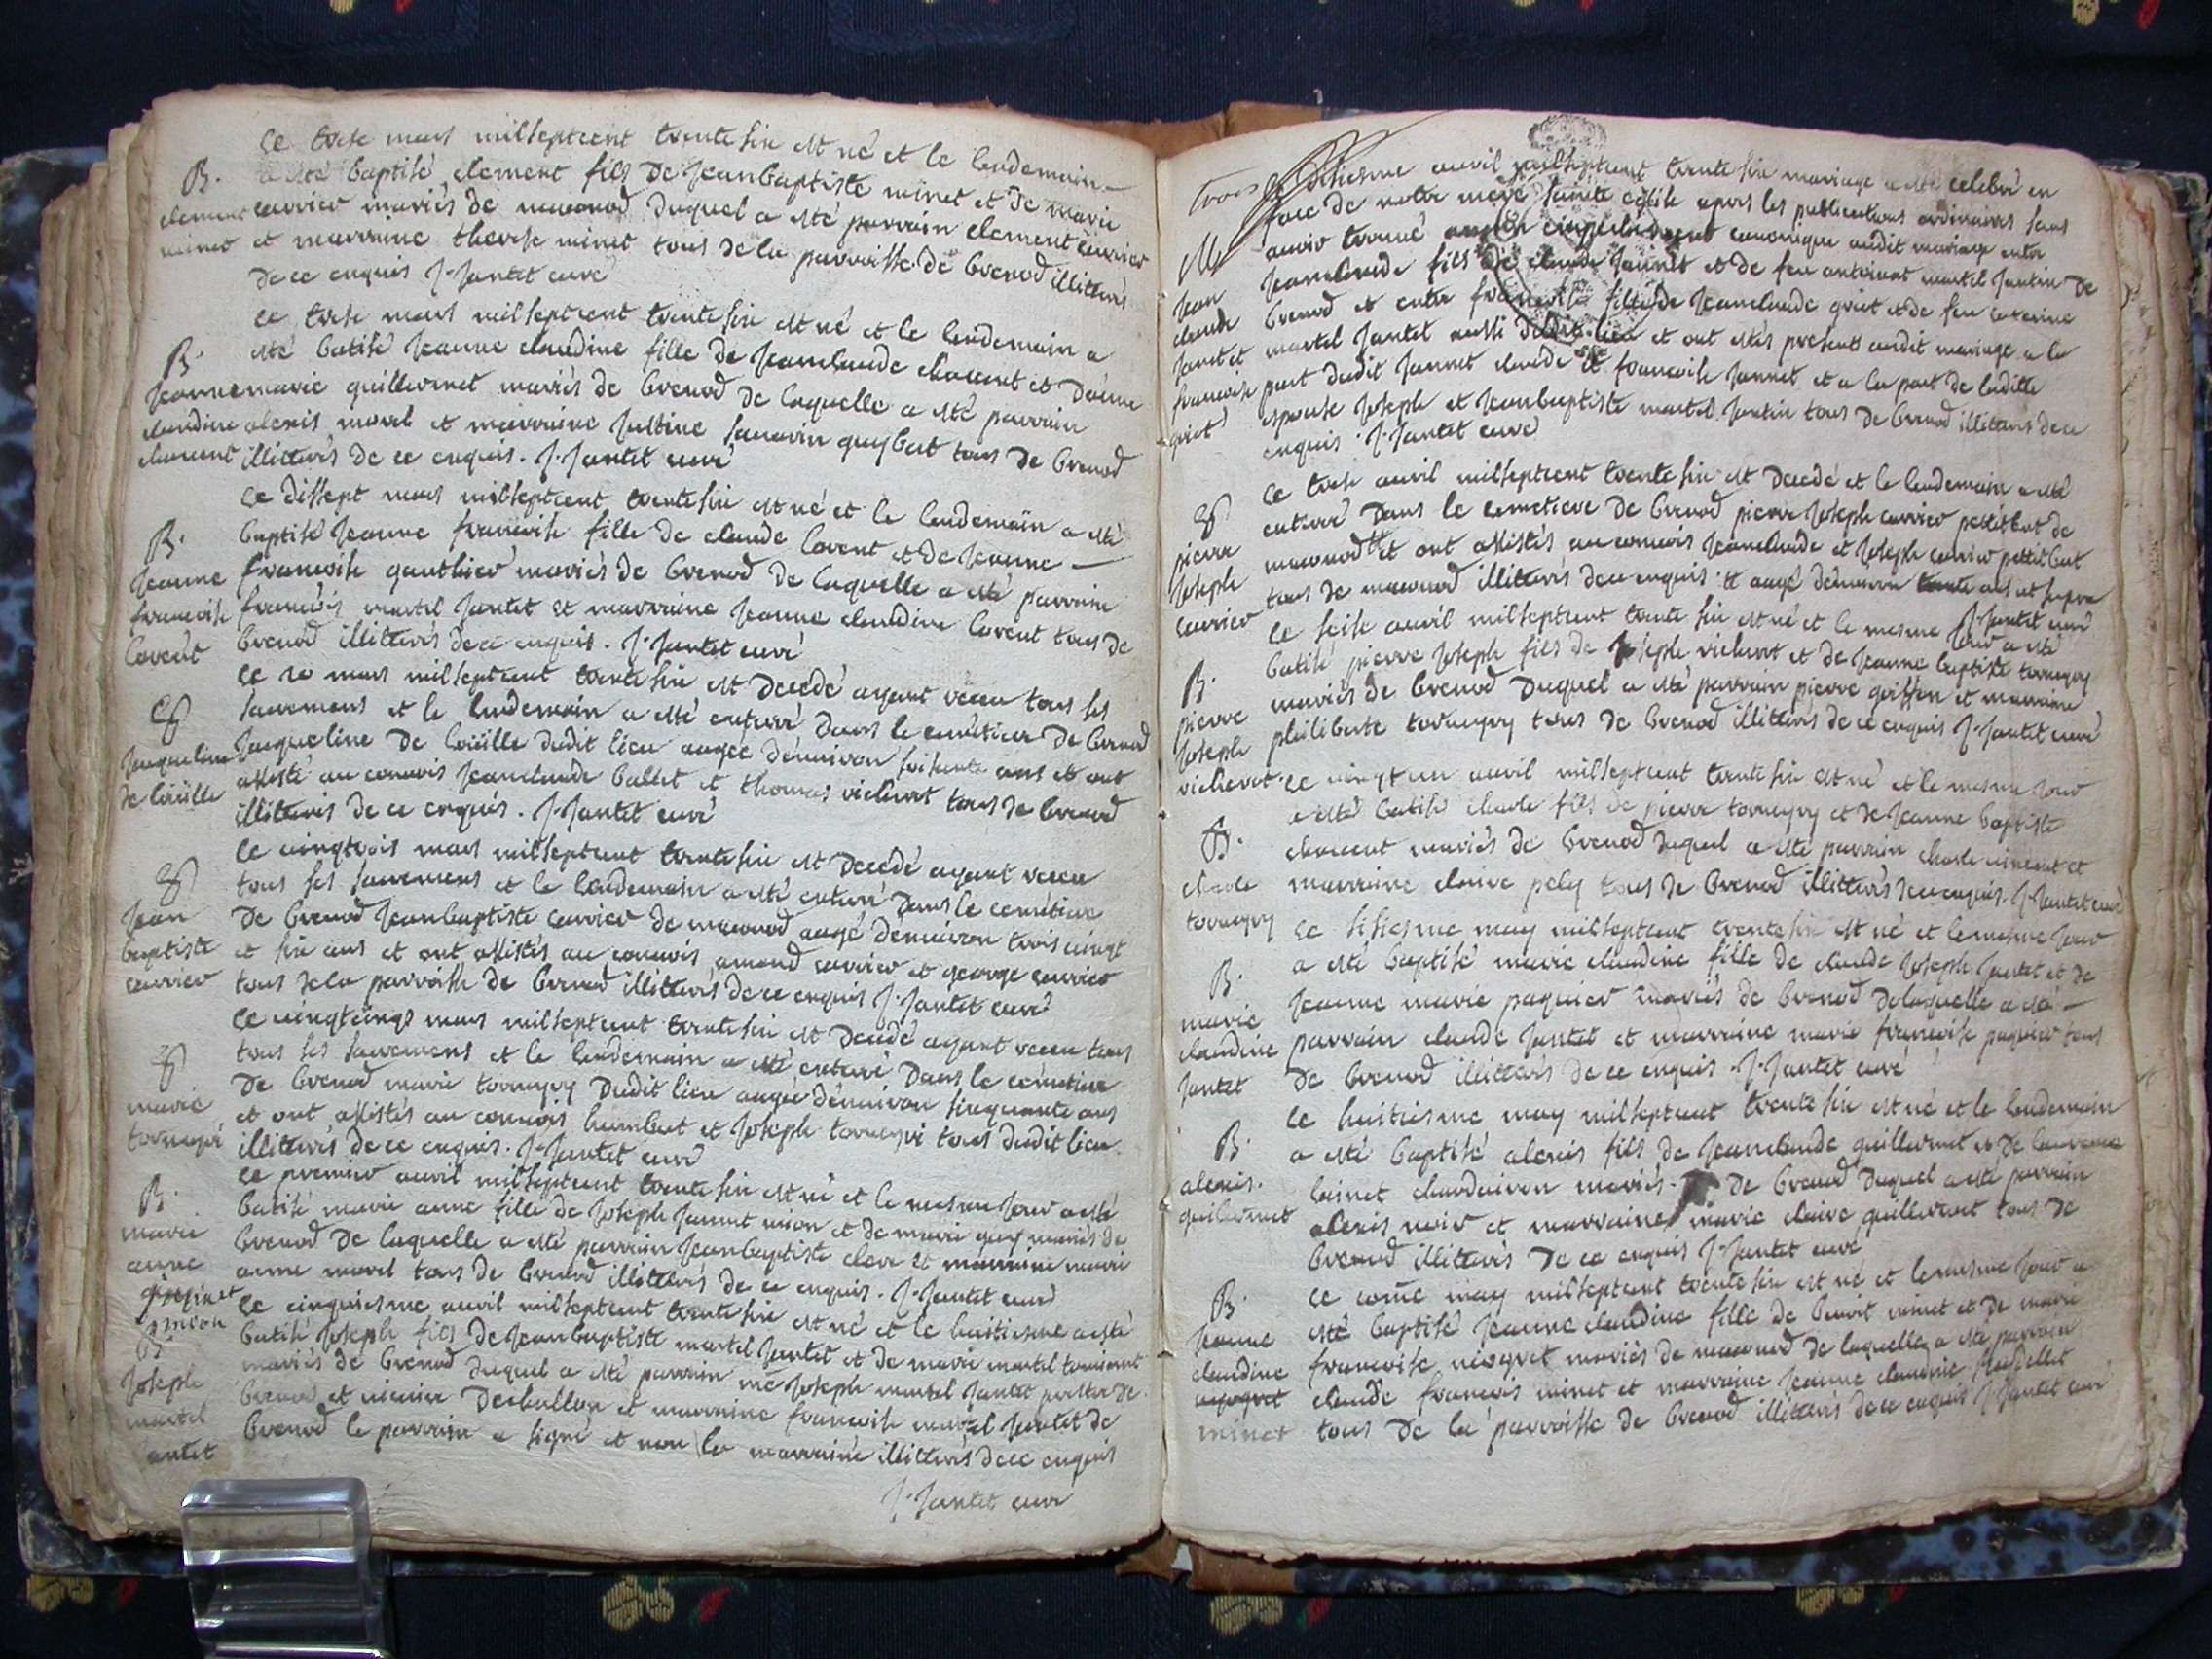 B.
clement
minet
Le trese mars milseptcent trente six est né et le lendemain
a esté baptisé clement fils de Jeanbaptiste minet et de marie
carrier mariés de maconod duquel a esté parrain clement carrier
et marraine therese minet tous de la parroisse de brenod illitterés
de ce enquis J. Jantet curé
B.
Jeanne
claudine
chavent
Le trese mars milseptcent trente six est né et le lendemain a
esté batisé Jeanne claudine fille de Jeanclaude chavent et
marie guillermet mariés de brenod de laquelle a esté parrain
alexis morel et marraine Justine tous de brenod
illitterés de ce enquis. J. Jantet curé
B.
Jeanne
francoise
Lovent
Le dissept mars milseptcent trente six est né et le lendemain a esté
baptisé Jeanne francoise fille de claude Lovent et de Jeanne
francoise gauthier mariés de brenod de laquelle a esté parrain
francois martel Jantet et marraine Jeanne claudine Lovent tous de
brenod illitterés de ce enquis. J. Jantet curé
Jaqueline
Le 20 mars milseptcent trente six est decedé ayant receu tous ses
sacremens et le lendemain a esté enterré dans le cemetiere de brenod
Jaqueline de dudit lieu aagée denviron soisante ans et ont
assisté au convois Jeanclaude ballet et thomas vicherot tous de brenod
illitterés de ce enquis. J. Jantet curé
Jean
baptiste
carrier
Le vingttrois mars milseptcent trente six est decedé ayant receu
tous ses sacremens et le lendemain a esté enterré dans le cemetiere
de brenod Jeanbaptiste carrier de maconod aagé denviron trois vingt
et six ans et ont assistés au convois amand carrier et george carrier
tous de la parroisse de brenod illitterés de ce enquis J. Jantet curé
marie
tornegri
Le vingtcinq mars milseptcent trente six est decedé ayant receu tous
tous ses sacremens et le lendemain a esté enterré dans le cemetiere
de brenod marie tornegry dudit lieu aagée denviron sinquante ans
et ont assistés au convois humbert et Joseph tornegri tous dudit lieu
illitterés de ce enquis. J. Jantet curé
B.
marie
anne
Le premier avril milseptcent trente six est né et le mesme Jour a esté
batisé marie anne fille de Joseph Jannet et de marie guy mariés de
brenod de laquelle a esté parrain Jeanbaptiste clerc et marraine marie
anne morel tous de brenod illitterés de ce enquis. J. Jantet curé
B
Joseph
martel
antet
Le cinquiesme avril milseptcent trente six est né et le huitiesme a esté
batisé Joseph fils de Jeanbaptiste martel Jantet et de marie martel
mariés de brenod duquel a esté parrain me Joseph martel Jantet prestre de
brenod et vicaire et marraine francoise martel Jantet de
brenod le parrain a signé et non la marraine illitterés de ce enquis
J. Jantet curé
trois
M
Jean
claude
Janet et
francoise
Le disiesme avril milseptcent trente six mariage a esté celebré en
face de notre mere sainte eglise apres les publications ordinaires sans
avoir trouvé aucun empeschement canonique audit mariage entre
Jeanclaude fils de claude Jannet et de feu antoinet martel Jantin de
brenod et entre francoise fille de Jeanclaude et de feu
martel Jantet aussi dudit lieu et ont estés presents audit mariage a la
part dudit Jannet claude et francoise Jannet et a la part de laditte
epouse Joseph et Jeanbaptiste martel Jantin tous de brenod illitterés de ce
enquis. J. Jantet curé
pierre
Joseph
carrier
Le trese avril milseptcent trente six est decedé et le lendemain a esté
enterré dans le cemetiere de brenod pierre Joseph carrier de
maconod et ont assistés au convois Jeanclaude et Joseph carrier
tous de maconod illitterés de ce enquis et aagé denviron trente ans
J. Jantet curé
B.
pierre
Joseph
vicherot
Le seise avril milseptcent trente six est né et le mesme Jour a esté
batisé pierre Joseph fils de Joseph vicherot et de Jeanne baptiste tornegry
mariés de brenod duquel a esté parrain pierre et marraine
philiberte tornegry tous de brenod illitterés de ce enquis J. Jantet curé
B.
charle
tornegry
Le vingt un avril milseptcent trente six est né et le mesme Jour
a esté batisé charle fils de pierre tornegry et de Jeanne baptiste
chavent mariés de brenod duquel a esté parrain charle vincent et
marraine claire tous de brenod illitterés de ce enquis. J. Jantet curé
B.
marie
claudine
Jantet
Le sisiesme may milseptcent trente six est né et le mesme Jour
a esté baptisé marie claudine fille de claude Joseph Jantet et de
Jeanne marie paquier mariés de brenod de laquelle a esté
parrain claude Jantet et marraine marie francoise paquier tous
de brenod illitterés de ce enquis. J. Jantet curé
B.
alexis.
guillermet
Le huitiesme may milseptcent trente six est né et le lendemain
a esté baptisé alexis fils de Jeanclaude guillermet et de
mariés de brenod duquel a esté parrain
alexis et marraine marie claire guillermet tous de
brenod illitterés de ce enquis J. Jantet curé
B.
Jeanne
claudine
minet
Le may milseptcent trente six est né et le mesme Jour a
esté baptisé Jeanne claudine fille de benoit minet et de marie
francoise mariés de maconod de laquelle a esté parrain
claude francois minet et marraine Jeanne claudine
tous de la parroisse de brenod illitterés de ce enquis J. Jantet curé